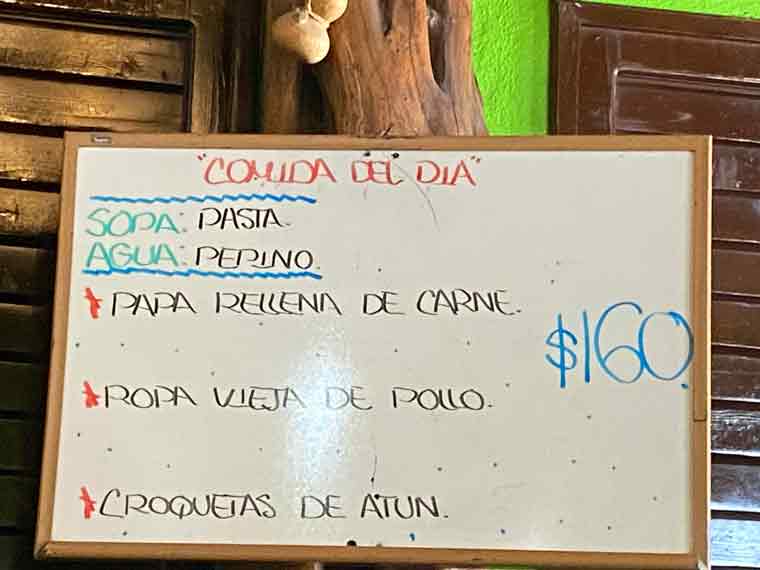 "COMIDA DEL DIA"
SOPA: PASTA.
AGUA: PEPINO.
PAPA RELLENA DE CARNE.
$160.
ROPA VIEJA DE POLLO.
CROQUETAS DE ATUN.